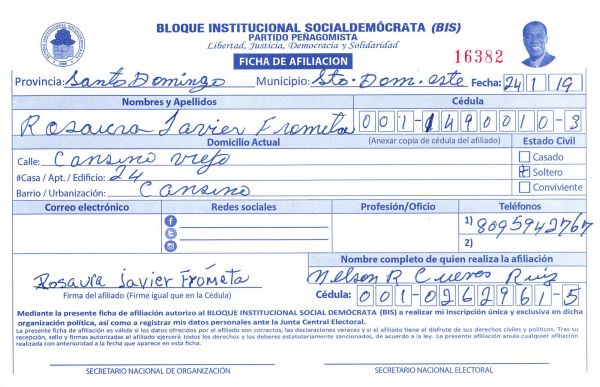 BLOQUE INSTITUCIONAL SOCIALDEMÓCRATA (BIS)
PARTIDO PEÑAGOMISTA
Libertad, Justicia, Democracia y Solidaridad
FICHA DE AFILIACION
16382
Provincia: Santo Domingo Municipio: Sto. Dom. este Fecha: 24 1 19
Nombres y Apellidos Cédula
Rosaura Javier Frometa 001-1490010-3
Domicilio Actual (Anexar copia de cédula del afiliado) Estado Civil
Calle: Cansino viejo Casado
#Casa / Apt. / Edificio: 24 Soltero
Barrio / Urbanización: Cansino Conviviente
Correo electrónico Redes sociales Profesión/Oficio Teléfonos
1) 8095942767
2)
Nombre completo de quien realiza la afiliación
Rosaura Javier Frómeta Nelson R Cuevas Ruiz
Firma del afiliado (Firme igual que en la Cédula) Cédula: 001-0262961-5
Mediante la presente ficha de afiliación autorizo al BLOQUE INSTITUCIONAL SOCIAL DEMÓCRATA (BIS) a realizar mi inscripción única y exclusiva en dicha
organización política, así como a registrar mis datos personales ante la Junta Central Electoral.
La presente ficha de afiliación es válida si los datos ofrecidos por el afiliado son correctos, las declaraciones veraces y si el afiliado tiene el disfrute de sus derechos civiles y políticos. Tras su
recepción, sello y firmas autorizadas el afiliado ejercerá todos los derechos y los deberes estatutariamente sancionados, de acuerdo a la ley. La presente afiliación anula cualquier afiliación
realizada con anterioridad a la fecha que aparece en esta ficha.
SECRETARIO NACIONAL DE ORGANIZACIÓN SECRETARIO NACIONAL ELECTORAL